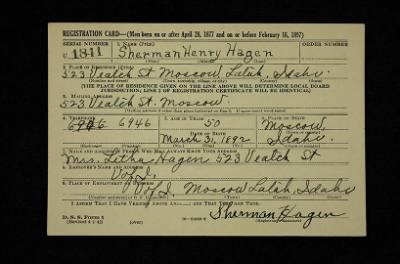 REGISTRATION CARD—(Men born on or after April 28, 1877 and on or before February 16, 1897)
SERIAL NUMBER 1. NAME (Print) ORDER NUMBER
U 1311 Sherman Henry Hagen
(First) (Middle) (Last)
2. PLACE OF RESIDENCE (Print)
523 Veatch St Moscow, Latah, Idaho
(THE PLACE OF RESIDENCE GIVEN ON THE LINE ABOVE WILL DETERMINE LOCAL BOARD
JURISDICTION; LINE 2 OF REGISTRATION CERTIFICATE WILL BE IDENTICAL)
3. MAILING ADDRESS
523 Veatch St. Moscow
4. TELEPHONE 5. AGE IN YEARS 6. PLACE OF BIRTH
6946 50 Moscow
DATE OF BIRTH
March 31, 1892 Idaho
7. NAME AND ADDRESS OF PERSON WHO WILL ALWAYS KNOW YOUR ADDRESS
Mrs. Letha Hagen 523 Veatch St
8. EMPLOYER'S NAME AND ADDRESS
U of I,
9. PLACE OF EMPLOYMENT OR BUSINESS
U of I Moscow Latah, Idaho
I AFFIRM THAT I HAVE VERIFIED ABOVE ANSWERS AND THAT THEY ARE TRUE.
Sherman Hagen
D. S. S. Form 1
(Revised 4-1-42) (over)